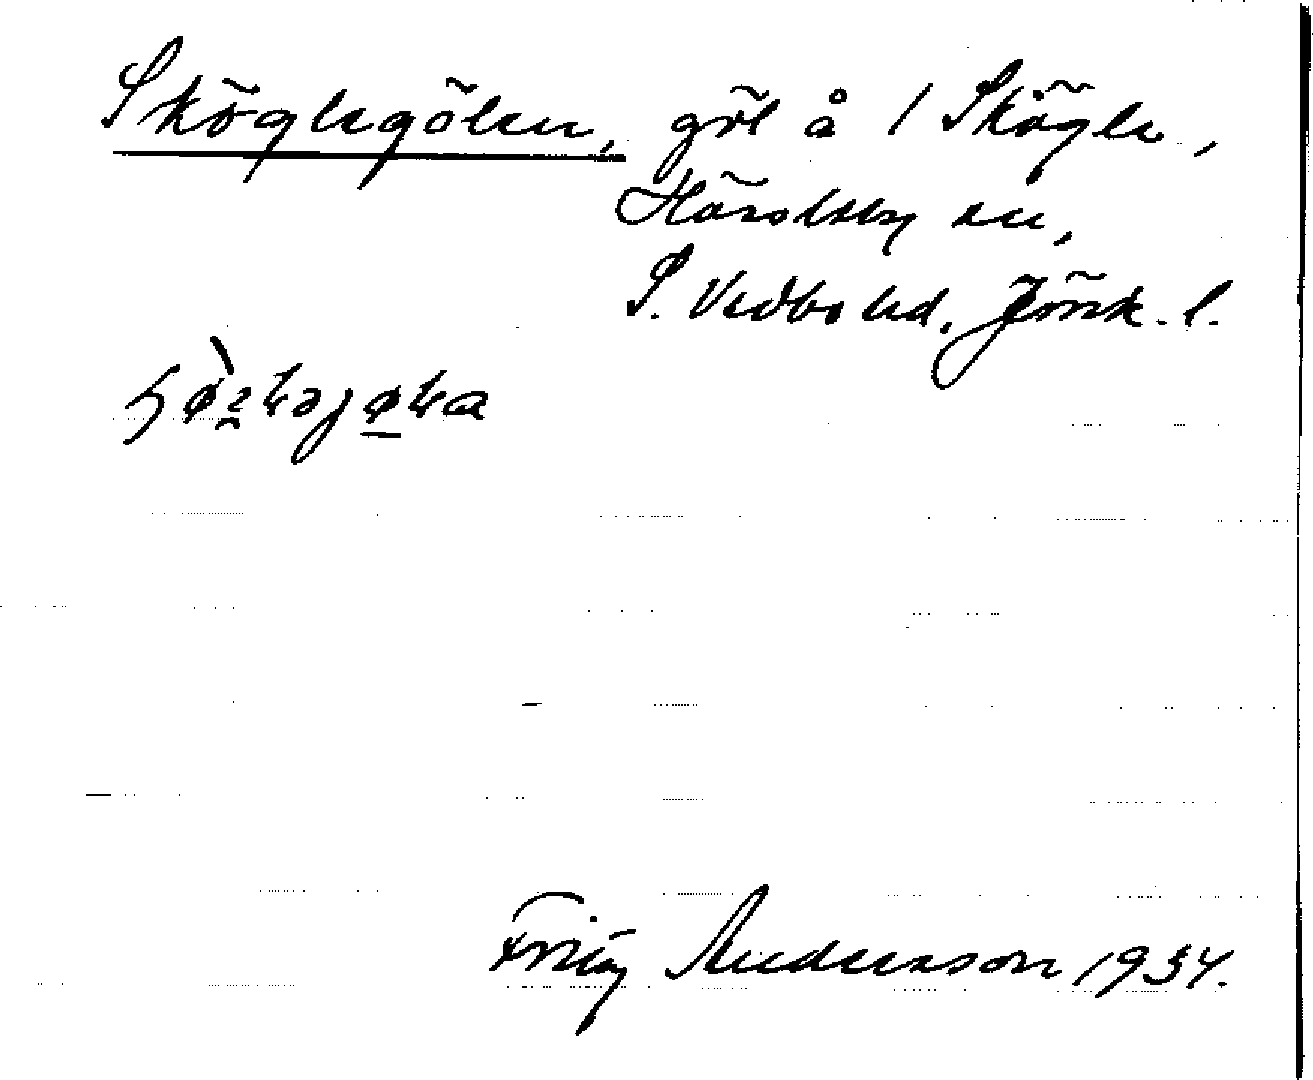 Sköglegölen, göl å 1 Skögle,
Häroldsby sn,
S. Vedbo hd. Jönk. l.
Fritz Andersson 1934.